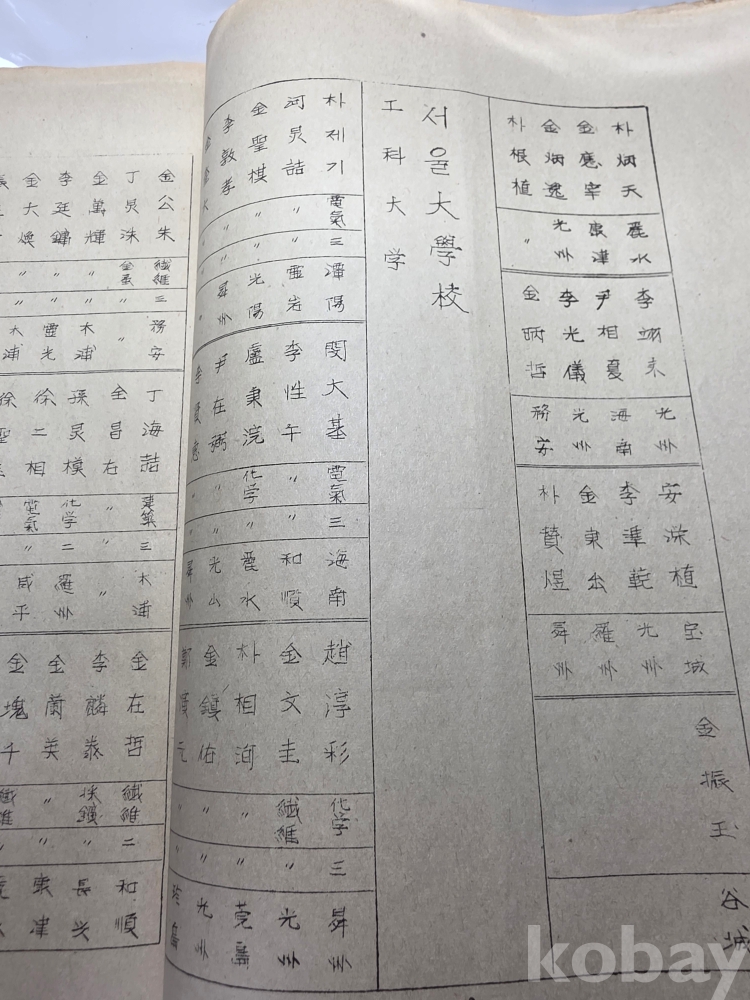 朴炳天
金應宰
金炳逸
朴根植
麗水
康津
光州
〃
尹相夏
李光儀
金炳哲
光州
海南
光州
務安
李準範
朴贊煜
宝城
光州
羅州
昇州
金振玉
谷城
서울大學校
工科大学
朴제기
河炅喆
金聖棋
李敦孝
電氣
〃
〃
〃
三
〃
〃
〃
潭陽
霊岩
光陽
昇州
閔大基
李性午
盧東浣
尹在弼
電氣
〃
化学
〃
〃
三
〃
〃
〃
〃
海南
和順
麗水
光山
昇州
趙淳彩
金文圭
朴相洵
金鎮佑
化学
纖維
〃
〃
〃
三
〃
〃
〃
〃
昇州
光州
莞島
光州
珍島
金公朱
丁炅洙
金萬輝
李廷鏞
金大煥
纖維
金属
〃
〃
〃
三
〃
〃
〃
〃
務安
〃
木浦
霊光
木浦
丁海喆
金昌右
孫炅模
徐二相
建築
〃
化学
電氣
三
〃
二
〃
木浦
〃
羅州
咸平
金在哲
李麟泰
金蘭美
金塊千
纖維
採鑛
〃
纖維
二
〃
〃
〃
和順
長兴
康津
kobay